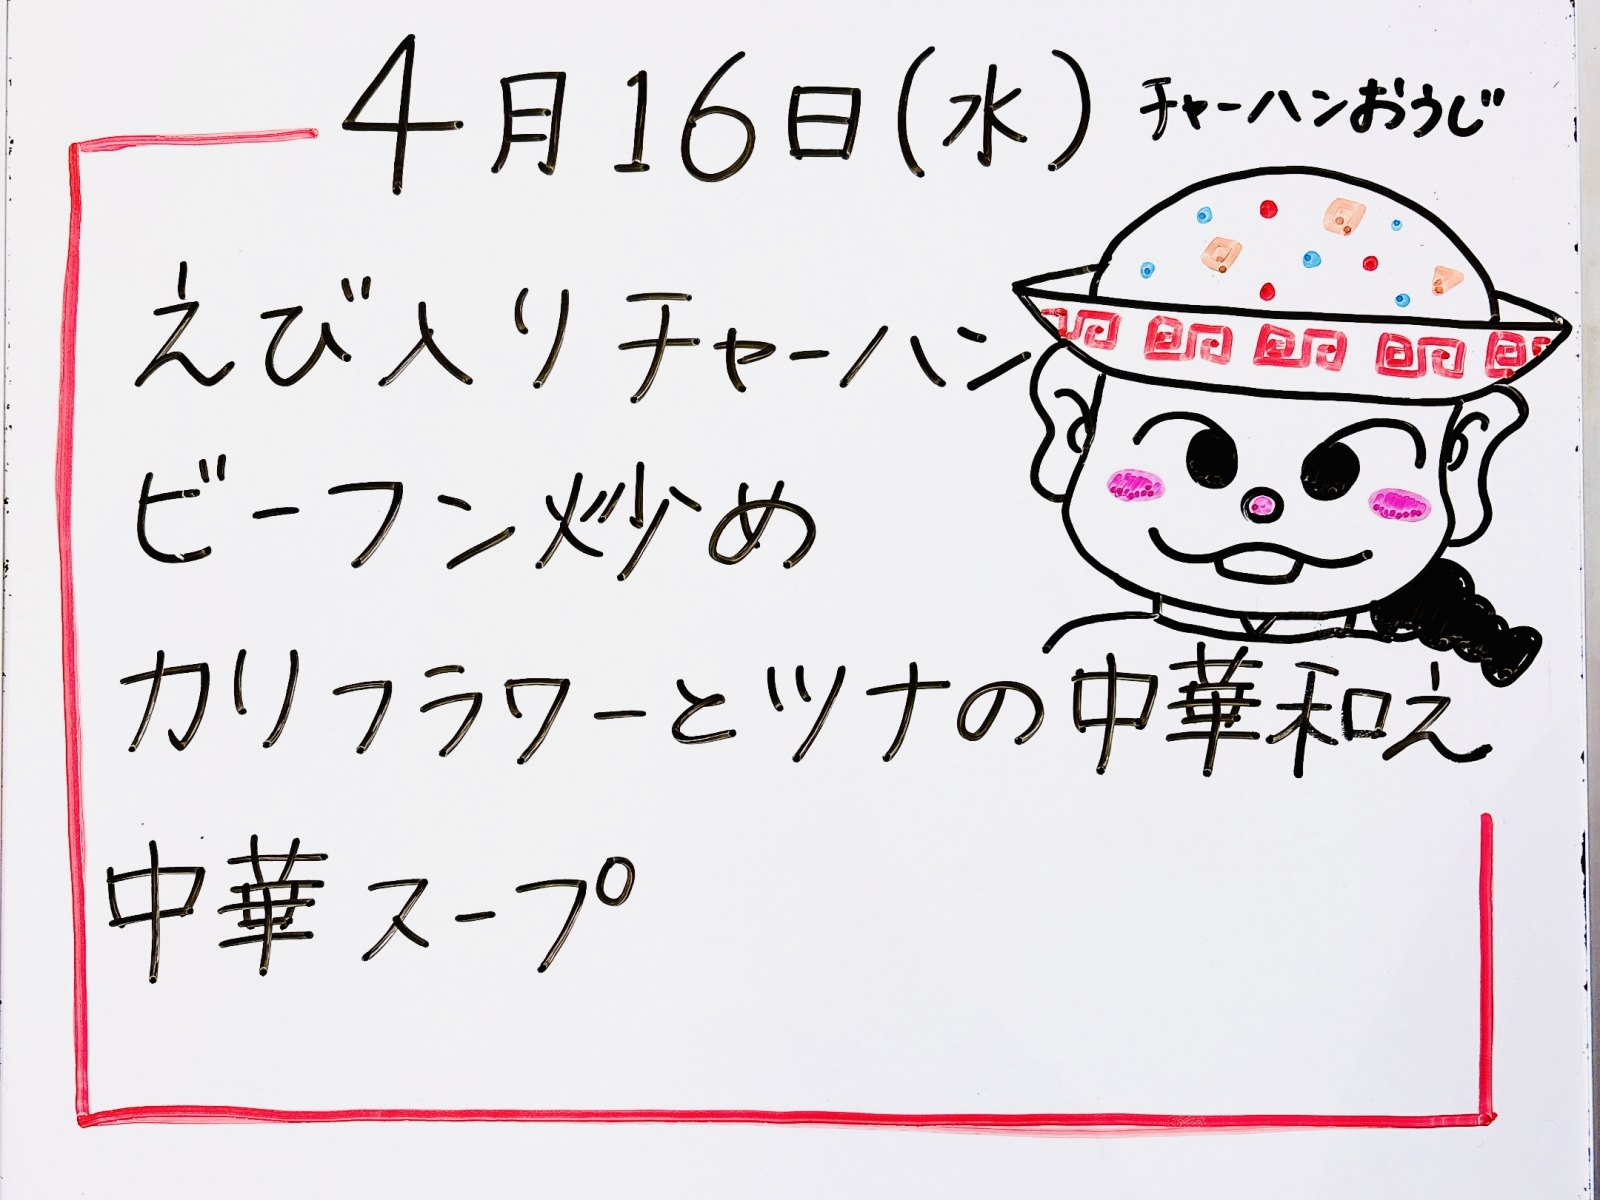 4月16日(水)
チャーハンおうじ
えび入りチャーハン
ビーフン炒め
カリフラワーとツナの中華和え
中華スープ